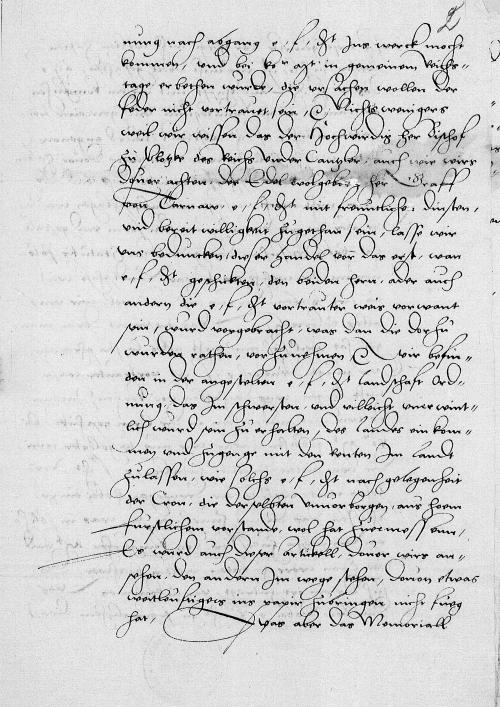 2
nung nach abgang e. f. Dt Ins werck mocht
kommen, und bei ko. mt in gemeinem Reichs-
tage erbothen wurde, die ursachen wollen der
feder nicht vortrauet sein, Nichts weniger
weil wir wissen, das der Hochwirdig her Bischof
zu Plotzke des Reichs under Cantzler, auch wir wirs
dovur achten, der Edel wolgeborn her Graff
von Tarnaw, e. f. Dt mit freuntlichen dinsten,
und bereit willigkeit zugethan sein, lasse wir
uns beduncken, dieser handel vor das erst, wan
e. f. Dt geschickten, den beiden hern, ader auch
andern die e. f. Dt vortrauter weis vorwant
sein, wurd vorgebracht, was dan die dorzu
wurden rathen, vorzunehmen, wir befin-
den in der angestelten e. f. Dt landschaft Ord-
nung, das Im schwersten, und villeicht
lich wurd sein zu erhalten, des landes einkom-
men und zugenge mit den Renten Im landt
zulassen, wie solchs e. f. Dt nach gelegenheit
der Cron, die derselbten unvorborgen, aus hoem
furstlichem vorstande, wol hat zuermessenn,
Es wurd auch dieser artickell, dovor wirs an-
sehen, den andern Im wege stehen, dovon etwas
weitleufigers ins papir zubringen nicht fueg
hat, Was aber das Memoriall